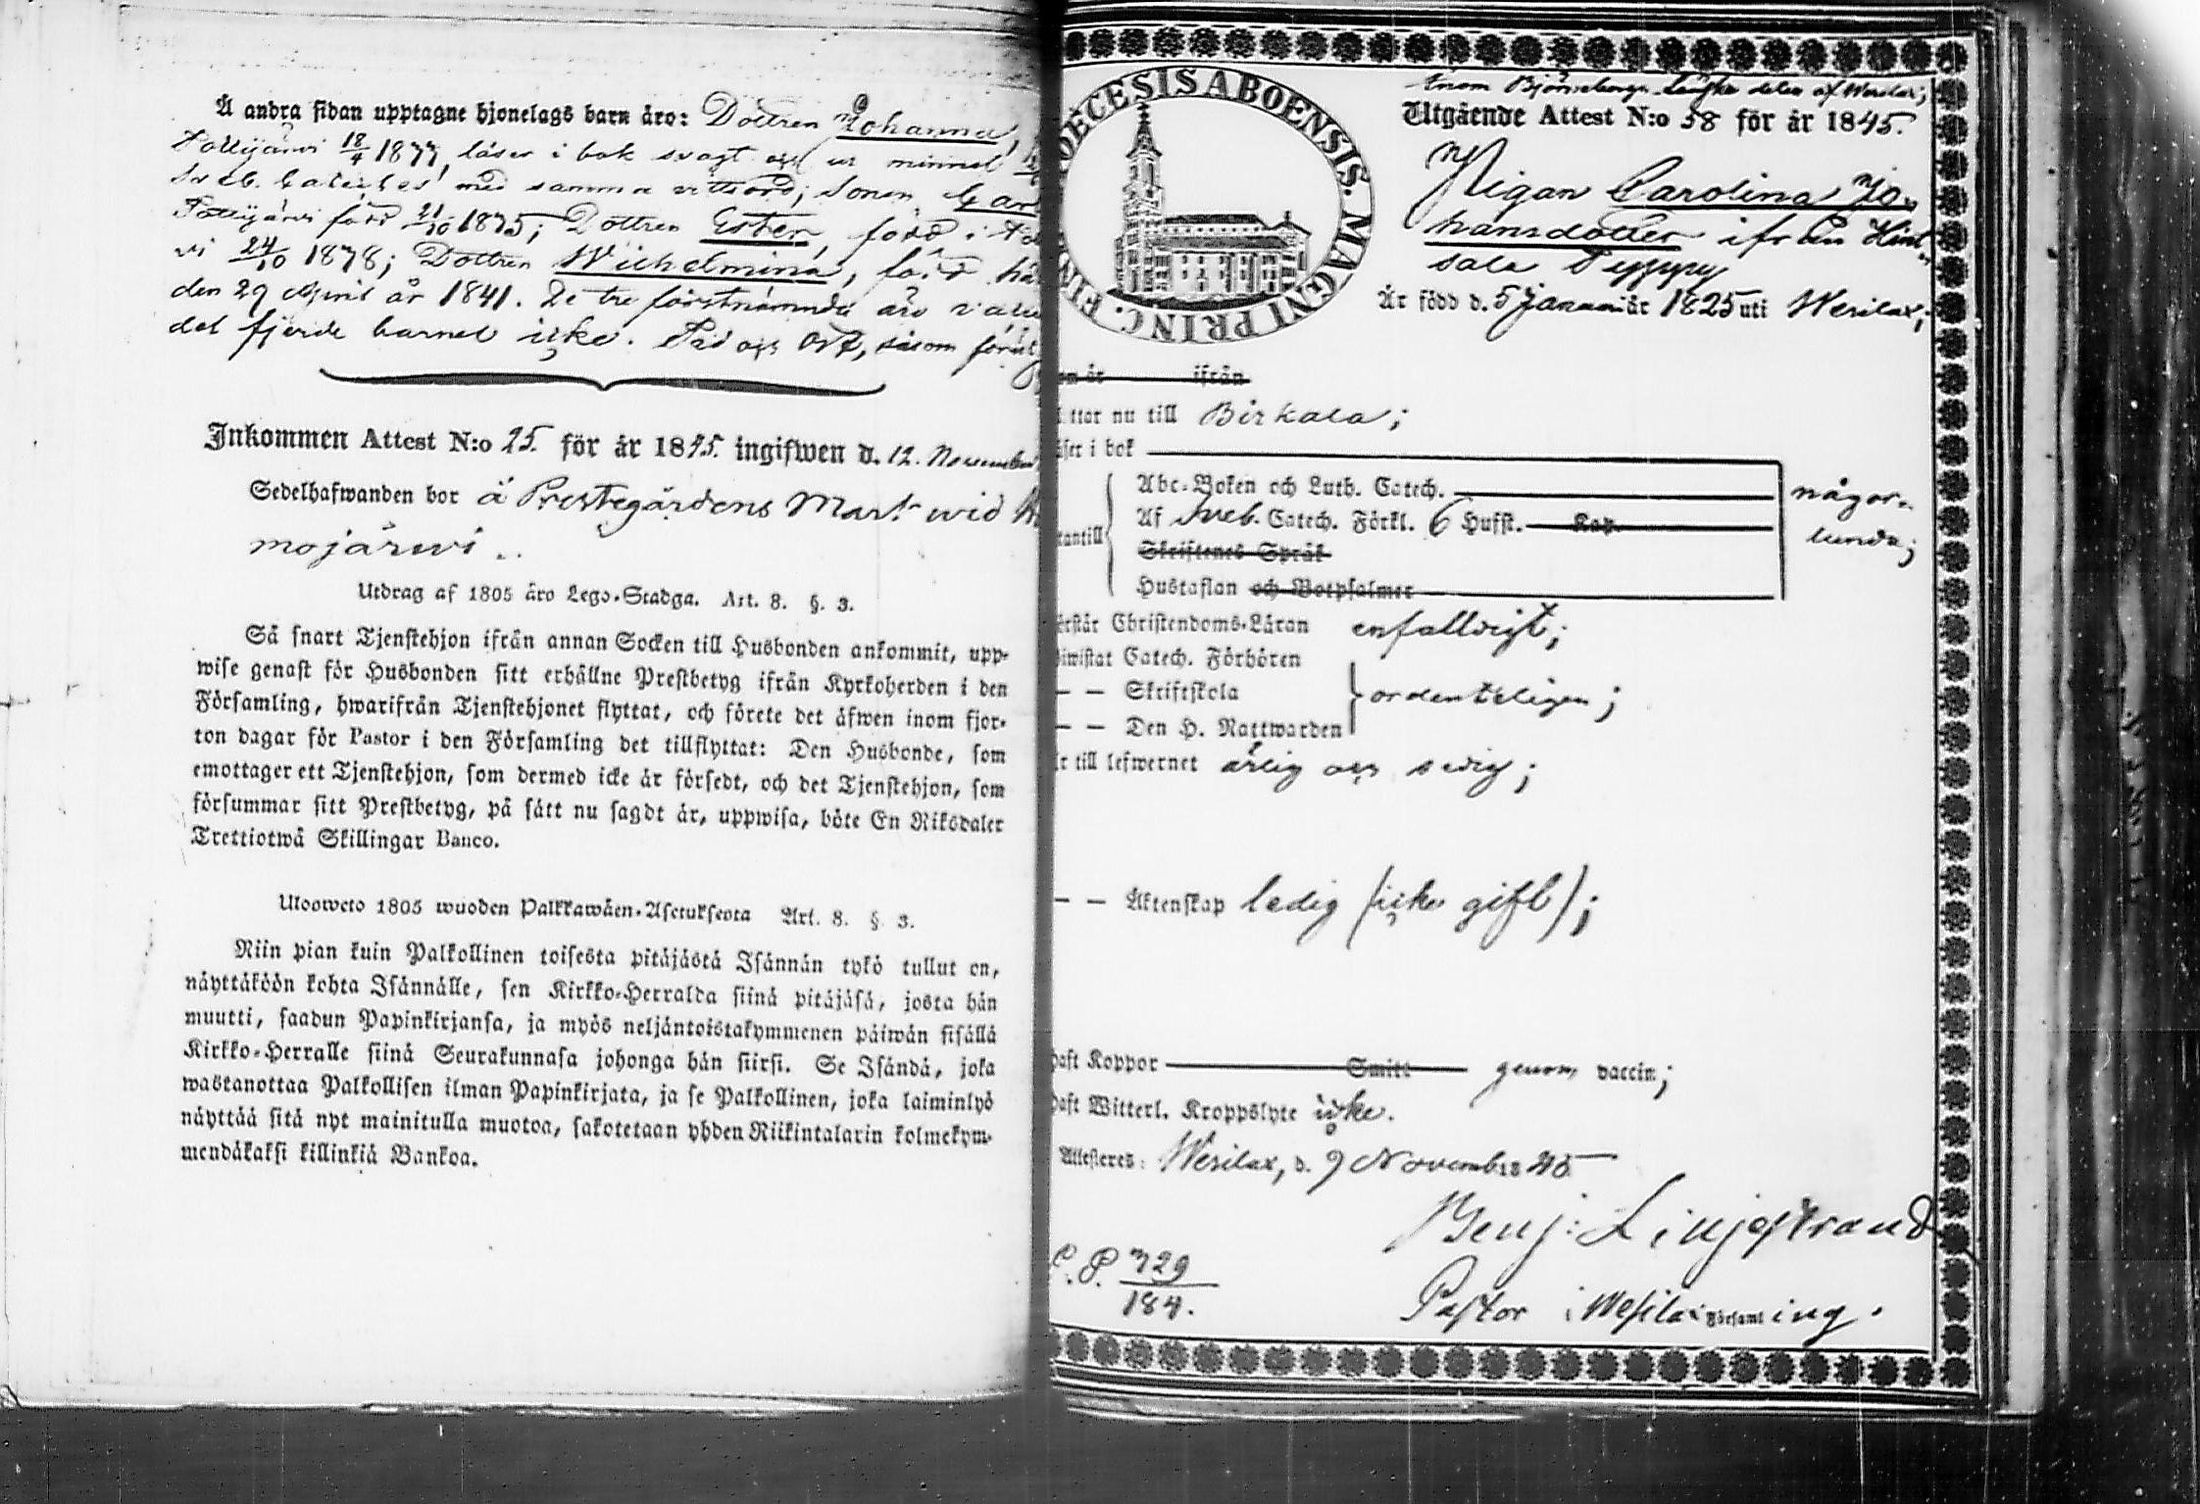 Å andra sidan upptagne hjonelags barn äro: Dottren Johanna,
18/4 1877, läser i bok svagt och ur minnet
Sveb. Cateches med samma vittsord; Sonen
född 21/10 1875; Dottren Ester, född i
24/10 1878; Dottren Wilhelmina, född
den 29 April år 1841. De tre förstnämnda äro
det fjerde barnet icke. Tid och Ort, såsom
Inkommen Attest N:o 25. för år 1845. ingifwen d. 12. November
Sedelhafwanden bor å Prestegårdens Mark wid
mojärwi.
Utdrag af 1805 åro Lego-Stadga. Art. 8. §. 3.
Så snart Tjenstehjon ifrån annan Socken till Husbonden ankommit, upp-
wise genast för Husbonden sitt erhållne Prestbetyg ifrån Kyrkoherden i den
Församling, hwarifrån Tjenstehjonet flyttat, och förete det äfwen inom fjor-
ton dagar för Pastor i den Församling det tillflyttat: Den Husbonde, som
emottager ett Tjenstehjon, som dermed icke är försedt, och det Tjenstehjon, som
försummar sitt Prestbetyg, på sätt nu sagdt är, uppwisa, böte En Riksdaler
Trettiotwå Skillingar Banco.
Ulosweto 1805 wuoden Palkkawäen-Asetuksesta Art. 8. § 3.
Niin pian kuin Palkollinen toisesta pitäjästä Isännän tykö tullut on,
näyttäköön kohta Isännälle, sen Kirkko-Herralda siinä pitäjäsä, josta hän
muutti, saadun Papinkirjansa, ja myös neljäntoistakymmenen päiwän sisällä
Kirkko-Herralle siinä Seurakunnasa johonga hän siirsi. Se Isändä, joka
wastanottaa Palkollisen ilman Papinkirjata, ja se Palkollinen, joka laiminlyö
näyttää sitä nyt mainitulla muotoa, sakotetaan yhden Riikintalarin kolmekym-
mendäkaksi killinkiä Bankoa.
DIOECESIS ABOENSIS. MAGNI PRINC. FIN
Inom Björneborgs Läns delen af Wesilax;
Utgående Attest N:o 58 för år 1845.
Pigan Carolina Jo-
hansdotter ifrån Hint-
sala Peppy
Är född d. 5 Januari år 1825 uti Wesilax;
om år ifrån
ttar nu till Birkala;
äser i bok
Abc-Boken och Luth. Catech. någor-
Af Sveb. Catech. Förkl. 6 Hufst. Kap. lunda;
tantill
Skriftenes Språk
Hustaflan och Botpsalmer
örstår Christendoms-Läran enfalldigt;
biwistat Catech. Förhören
— — Skriftskola ordenteligen;
— — Den H. Nattwarden
Är till lefwernet ärlig och sedig;
— — Äktenskap ledig (icke gift);
haft Koppor Smitt genom vaccin;
haft Witterl. Kroppslyte icke.
Attesteres: Wesilax, d. 9 November 1845
Benj: Liljestrand
C. P. 729/184.
Pastor i Wesilax Församling.